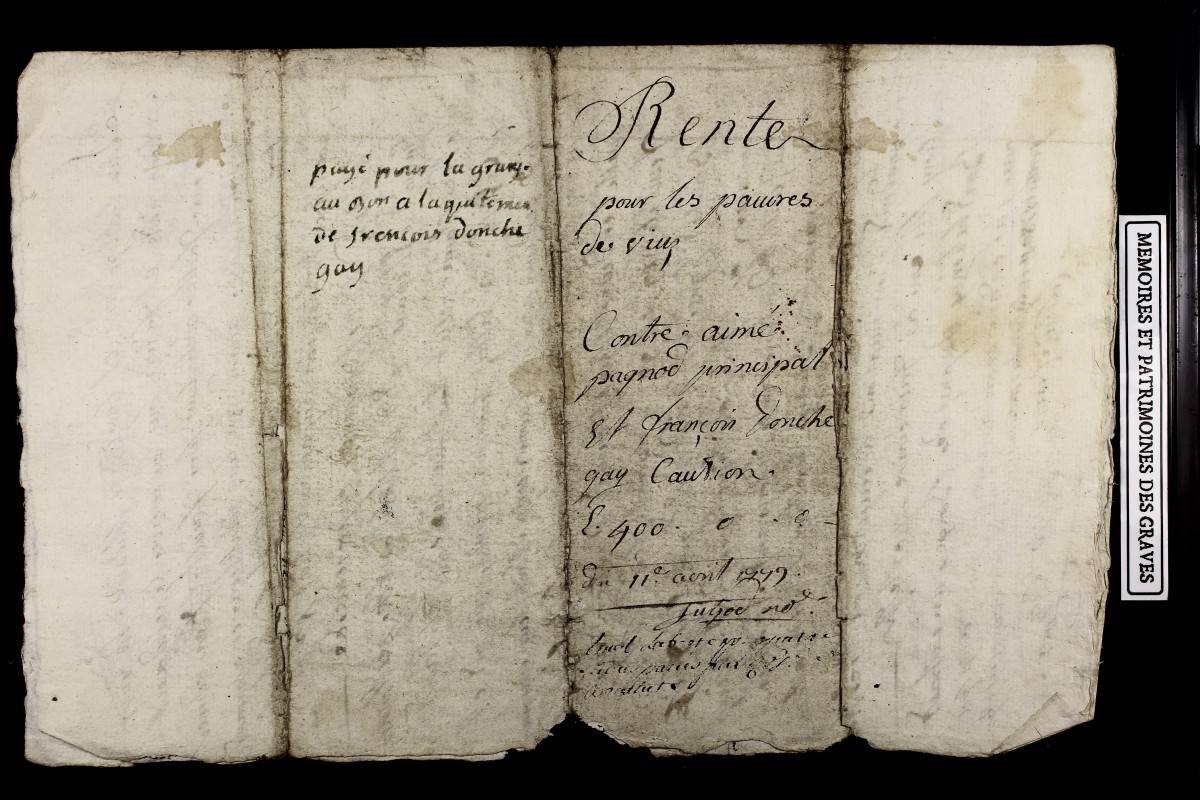 payé pour la
au a la
de francois donche
gay
Rente
pour les pauvres
de viuz
Contre aimé
pagnod principal
Et françois Donche
gay Caution.
L. 400. 0 . 0
Du 11e avril 1779.
MEMOIRES ET PATRIMOINES DES GRAVES